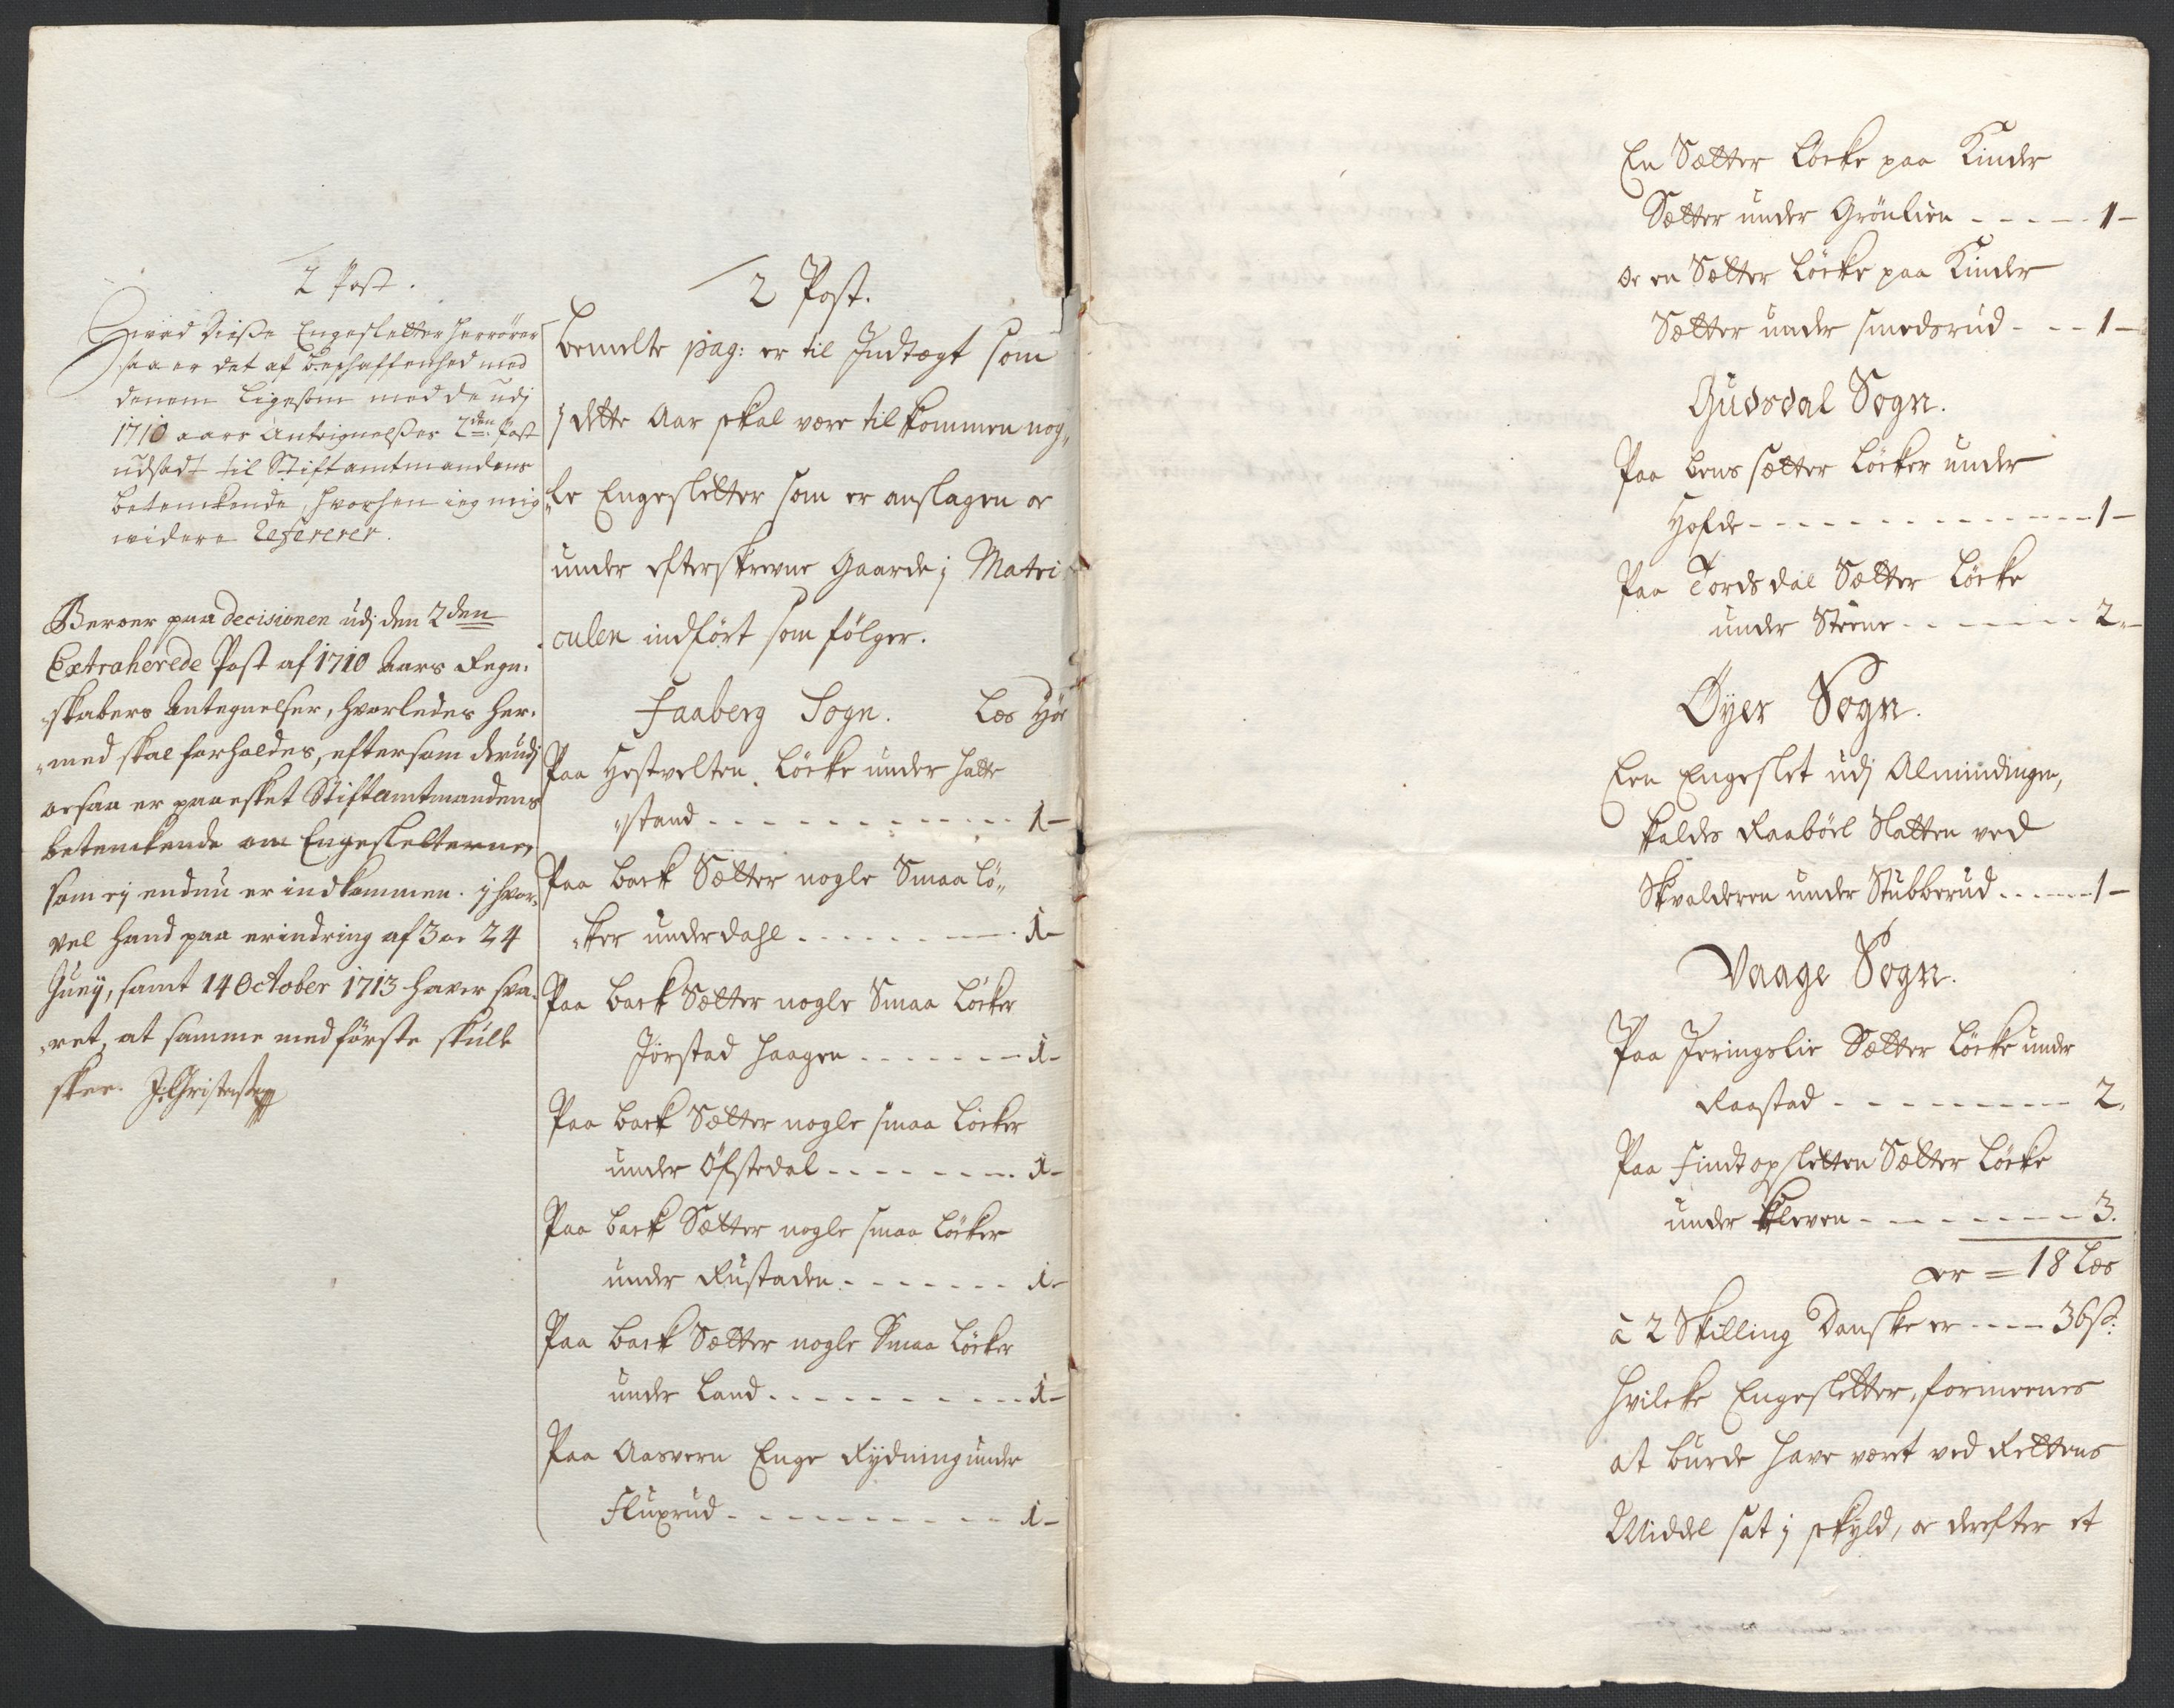 2 Post.
Hvad disse Engesletter herrörer
saa er det af beschaffenhed med
denem ligesom med de udj
1710 aars Anteignelsses 2den Post
udsadt til Stiftamtmandens
betenkende, hvorhen ieg mig
widere Refererer.
Beroer paa decisionen udj den 2den
Extraherede Post af 1710 Aars Regn-
skabers Antegnelser, hvorledes her-
med skal forholdes, eftersom derudj
ocsaa er paaesket Stiftamtmandens
betenckende om Engesletterne,
som ej endnu er indkommen. j hvor-
vel hand paa erindring af 3 oc 24
Juny, samt 14 October 1713 haver sva-
ret, at samme med förste skulle
skee. J: Christensen
2 Post.
bemelte pag: er til Indtægt som
j dette Aar skal være tilkommen nog„
„le Engesletter som er anslagen oc
under efterskrevne Gaarde j Matri
culen indfört som fölger.
Faaberg Sogn. Læs Höe
Paa Hestvelten Löcke under Hatte
„stand - - - 1 -
Paa back Sætter nogle Smaa Lö„
„cker under dahl - - - 1 -
Paa back Sætter nogle Smaa Löcker
Jörstad haagen - - - 1 -
Paa back Sætter nogle smaa Löcker
under Öfstedal - - - 1 -
Paa back Sætter nogle smaa Löcker
under Rustaden - - - 1 -
Paa back Sætter nogle Smaa Löcker
under Land - - - 1 -
Paa Aasvern Enge Rydning under
Fluxrud - - - 1 -
En Sætter Löcke paa Kinder
Sætter under Grönlien - - - 1 -
oc en Sætter Löcke paa Kinder
Sætter under smedsrud - - - 1 -
Gusdal Sogn.
Paa bens sætter Löcker under
Hofde - - - 1 -
Paa Tordsdal Sætter Löcke
under Steene - - - 2 -
Öyer Sogn.
Een Engeslet udj Almindingen,
kaldes Raaböel Slatten ved
Skvalderen under Stubberud - - - 1 -
Vaage Sogn.
Paa Jeringslie Sætter Löcke under
Raastad - - - 2.
Paa Findtopsletten Sætter Löcke
under Kleven - - - 3.
er = 18 Læs
à 2 Skilling Danske er - - - 36 s:
hvilcke Engesletter, formeenes
at burde have været ved Rettens
Middel sat j skyld, oc derefter et